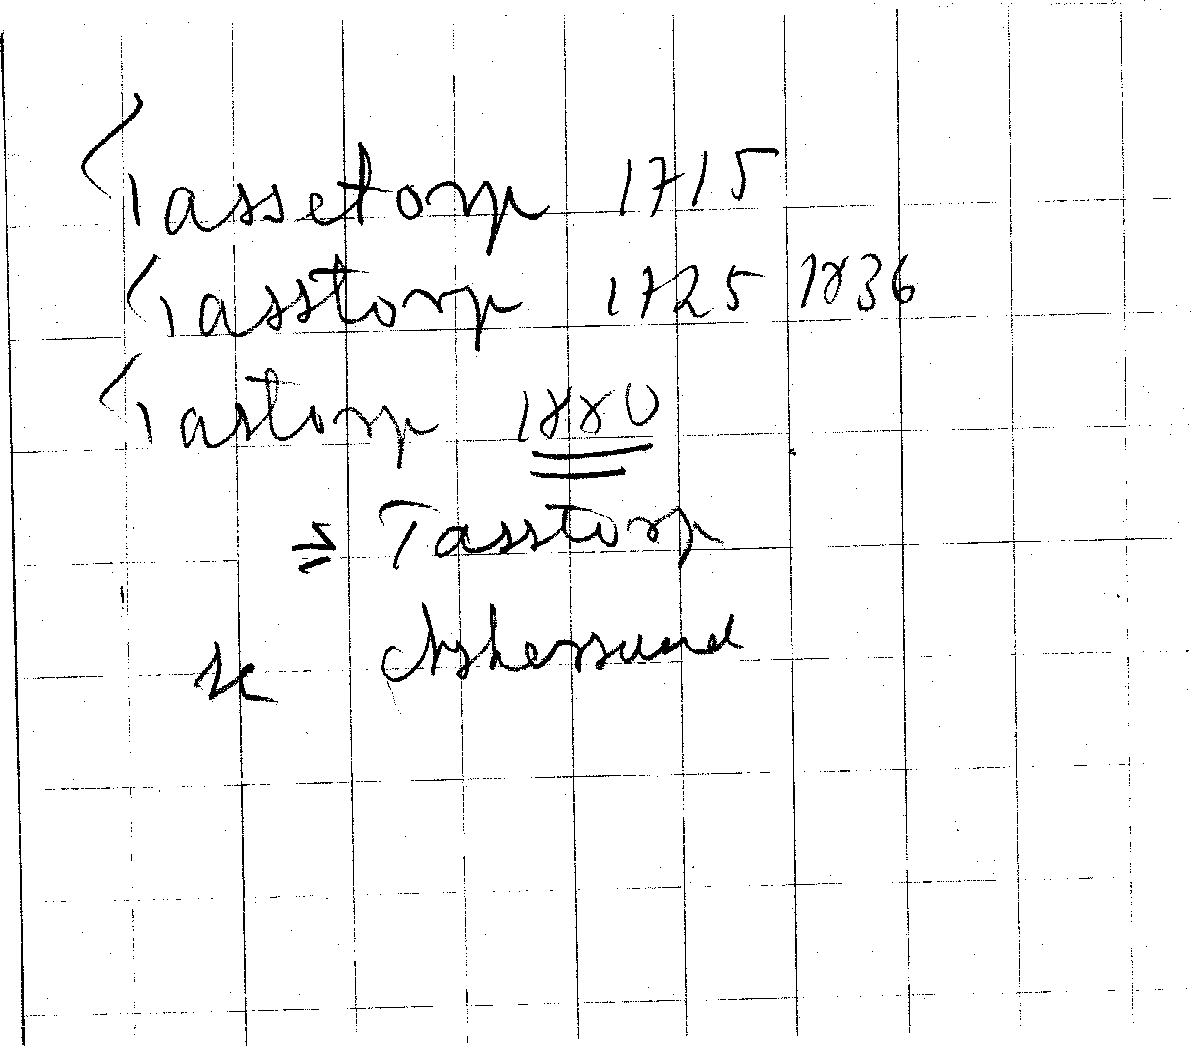 Tassetorp 1715
Tasstorp 1725 1836
Tastorp 1880
⇒ Tasstorp
sk Askersund